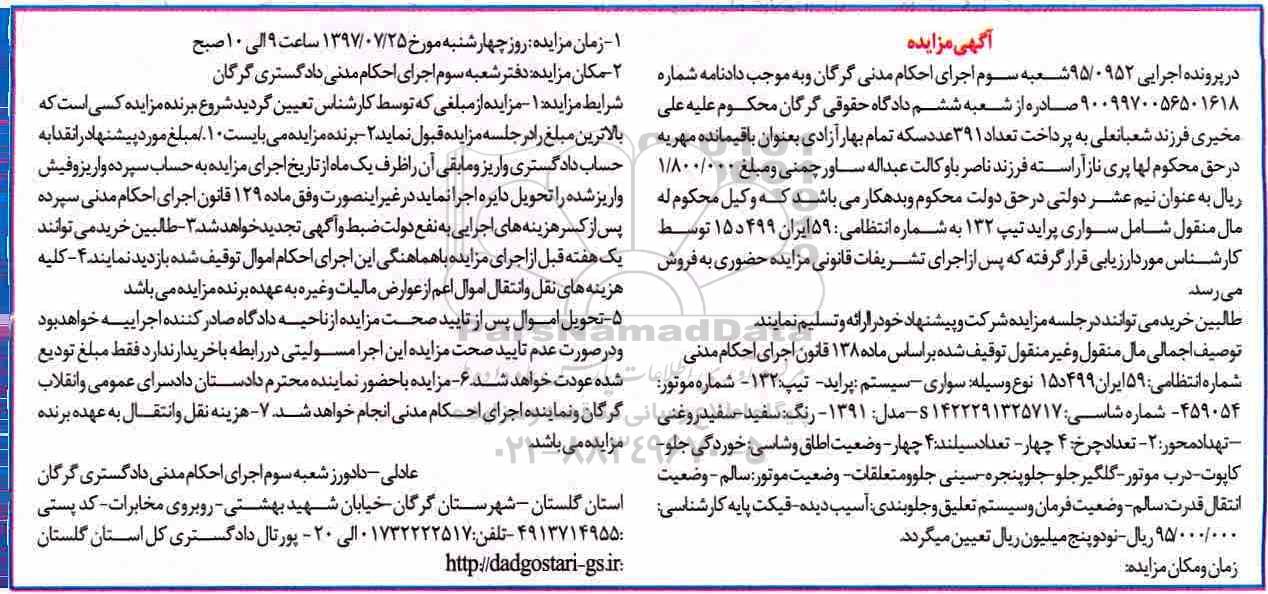 آگهی مزایده
در پرونده اجرایی ۹۵/۰۹۵۲ شعبه سوم اجرای احکام مدنی گرگان و به موجب دادنامه شماره
۹۰۰۹۹۷۰۰۵۶۵۰۱۶۱۸ صادره از شعبه ششم دادگاه حقوقی گرگان محکوم علیه علی
مخیری فرزند شعبانعلی به پرداخت تعداد ۳۹۱ عدد سکه تمام بهار آزادی بعنوان باقیمانده مهریه
در حق محکوم لها پری ناز آراسته فرزند ناصر با وکالت عبداله ساور چمنی و مبلغ ۱/۸۰۰/۰۰۰
ریال به عنوان نیم عشر دولتی در حق دولت محکوم و بدهکار می باشد که وکیل محکوم له
مال منقول شامل سواری پراید تیپ ۱۳۲ به شماره انتظامی: ۵۹ ایران ۴۹۹ د ۱۵ توسط
کارشناس مورد ارزیابی قرار گرفته که پس از اجرای تشریفات قانونی مزایده حضوری به فروش
می رسد.
طالبین خرید می توانند در جلسه مزایده شرکت و پیشنهاد خود را ارائه و تسلیم نمایند.
توصیف اجمالی مال منقول و غیر منقول توقیف شده بر اساس ماده ۱۳۸ قانون اجرای احکام مدنی
شماره انتظامی: ۵۹ ایران ۴۹۹ د ۱۵ نوع وسیله: سواری – سیستم: پراید- تیپ: ۱۳۲- شماره موتور:
۴۵۹۰۵۴- شماره شاسی: S۱۴۲۲۲۹۱۳۲۵۷۱۷ – مدل: ۱۳۹۱- رنگ: سفید-سفید روغنی
– تهداد محور: ۲- تعداد چرخ: ۴ چهار- تعداد سیلند: ۴ چهار- وضعیت اطاق و شاسی: خوردگی جلو-
کاپوت- درب موتور-گلگیر جلو-جلو پنجره-سینی جلو و متعلقات- وضعیت موتور: سالم- وضعیت
انتقال قدرت: سالم- وضعیت فرمان و سیستم تعلیق و جلوبندی: آسیب دیده-قیکت پایه کارشناسی:
۹۵/۰۰۰/۰۰۰ ریال-نود و پنج میلیون ریال تعیین میگردد.
زمان و مکان مزایده:
۱- زمان مزایده: روز چهارشنبه مورخ ۱۳۹۷/۰۷/۲۵ ساعت ۹ الی ۱۰ صبح
۲-مکان مزایده: دفتر شعبه سوم اجرای احکام مدنی دادگستری گرگان
شرایط مزایده: ۱- مزایده از مبلغی که توسط کارشناس تعیین گردید شروع، برنده مزایده کسی است که
بالاترین مبلغ را در جلسه مزایده قبول نماید. ۲- برنده مزایده می بایست ۱۰٪ مبلغ مورد پیشنهاد را نقدا به
حساب دادگستری واریز و مابقی آن را ظرف یک ماه از تاریخ اجرای مزایده به حساب سپرده واریز و فیش
واریز شده را تحویل دایره اجرا نماید در غیر اینصورت وفق ماده ۱۲۹ قانون اجرای احکام مدنی سپرده
پس از کسر هزینه های اجرایی به نفع دولت ضبط و آگهی تجدید خواهد شد. ۳-طالبین خرید می توانند
یک هفته قبل از اجرای مزایده با هماهنگی این اجرای احکام اموال توقیف شده بازدید نمایند. ۴- کلیه
هزینه های نقل و انتقال اموال اعم از عوارض مالیات و غیره به عهده برنده مزایده می باشد
۵- تحویل اموال پس از تایید صحت مزایده از ناحیه دادگاه صادر کننده اجراییه خواهد بود
و در صورت عدم تایید صحت مزایده این اجرا مسولیتی در رابطه با خریدار ندارد فقط مبلغ تودیع
شده عودت خواهد شد. ۶- مزایده با حضور نماینده محترم دادستان دادسرای عمومی و انقلاب
گرگان و نماینده اجرای احکام مدنی انجام خواهد شد. ۷- هزینه نقل و انتقال به عهده برنده
مزایده می باشد.
عادلی – دادورز شعبه سوم اجرای احکام مدنی دادگستری گرگان
استان گلستان – شهرستان گرگان -خیابان شهید بهشتی- روبروی مخابرات- کد پستی
:۴۹۱۳۷۱۴۹۵۵-تلفن: ۰۱۷۳۲۲۲۲۵۱۷ الی ۲۰ - پورتال دادگستری کل استان گلستان
:http://dadgostari-gs.ir
ParsNamadData
۰۲۱-۸۸۳۴۹۶۷۰-۵